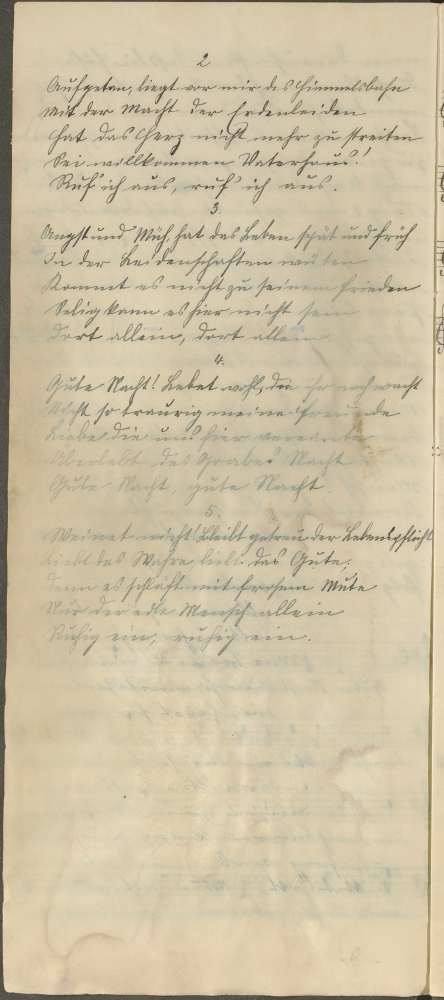 2
Aufgetan, liegt vor mir des Himmelsbahn
Mit der Macht der Erdenleiden
Hat das Herz nicht mehr zu streiten
Sei willkommen Vaterhaus!
Ruf' ich aus, ruf' ich aus.
3.
Angst und Müh, hat das Leben spät und früh
In der Leidenschaften wüten
Kommt es nicht zu seinem Frieden
Selig kann es hier nicht sein
Dort allein, dort allein
4.
Gute Nacht! Lebet wohl, die ihr noch wacht
Nicht so traurig meine Freunde
Liebe die uns hier vereinte
Überlebt des Grabes Nacht
Gute Nacht, gute Nacht.
5.
Weinet nicht! Bleibt getreu der Lebenspflicht
Liebt das Wahre, liebt das Gute,
Denn es schläft mit frosem Mute
Nur der edle Mensch allein
Ruhig ein, ruhig ein.